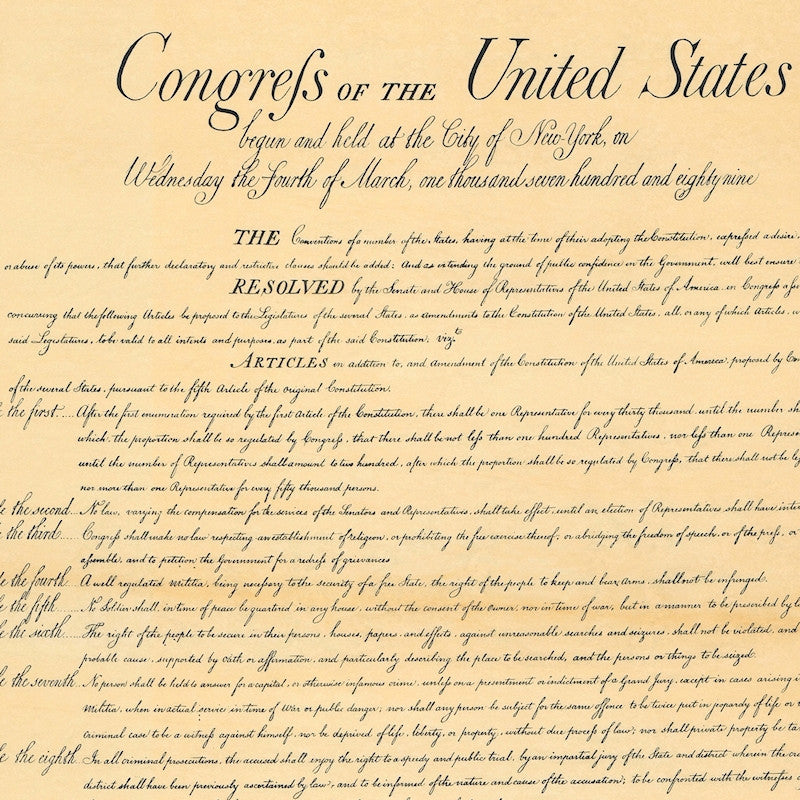 Congreſs OF THE United States
begun and held at the City of New-York, on
Wednesday the Fourth of March, one thousand seven hundred and eighty nine
THE Conventions of a number of the States, having at the time of their adopting the Constitution, expressed a desire,
or abuse of its powers, that further declaratory and restrictive clauses should be added: And as extending the ground of public confidence in the Government, will best ensure
RESOLVED by the Senate and House of Representatives of the United States of America, in Congress
concurring that the following Articles be proposed to the Legislatures of the several States, as amendments to the Constitution of the United States, all, or any of which Articles,
said Legislatures, to be valid to all intents and purposes, as part of the said Constitution. vizt
ARTICLES in addition to, and Amendment of the Constitution of the United States of America, proposed by
of the several States, pursuant to the fifth Article of the original Constitution.
the first.... After the first enumeration required by the first Article of the Constitution, there shall be one Representative for every thirty thousand, until the number
which, the proportion shall be so regulated by Congreſs, that there shall be not leſs than one hundred Representatives, nor leſs than one
until the number of Representatives shall amount to two hundred, after which the proportion shall be so regulated by Congreſs, that there shall not be
nor more than one Representative for every fifty thousand persons.
the second... No law, varying the compensation for the services of the Senators and Representatives, shall take effect, until an election of Representatives shall have
the third..... Congreſs shall make no law respecting an establishment of religion, or prohibiting the free exercise thereof; or abridging the freedom of speech, or of the preſs, or
aſsemble, and to petition the Government for a redreſs of grievances
the fourth... A well regulated Militia, being neceſsary to the security of a free State, the right of the people to keep and bear Arms, shall not be infringed.
the fifth..... No Soldier shall, in time of peace be quartered in any house, without the consent of the Owner, nor in time of war, but in a manner to be prescribed by
the sixth..... The right of the people to be secure in their persons, houses, papers, and effects, against unreasonable searches and seizures, shall not be violated, and
probable cause, supported by Oath or affirmation, and particularly describing the place to be searched, and the persons or things to be seized.
the seventh. No person shall be held to answer for a capital, or otherwise infamous crime, unleſs on a presentment or indictment of a Grand Jury, except in cases arising
Militia, when in actual service in time of War or public danger; nor shall any person be subject for the same offence to be twice put in jeopardy of life or
criminal case to be a witneſs against himself, nor be deprived of life, liberty, or property, without due proceſs of law; nor shall private property be
the eighth. In all criminal prosecutions, the accused shall enjoy the right to a speedy and public trial, by an impartial jury of the State and district wherein the
district shall have been previously ascertained by law; and to be informed of the nature and cause of the accusation; to be confronted with the witneſses